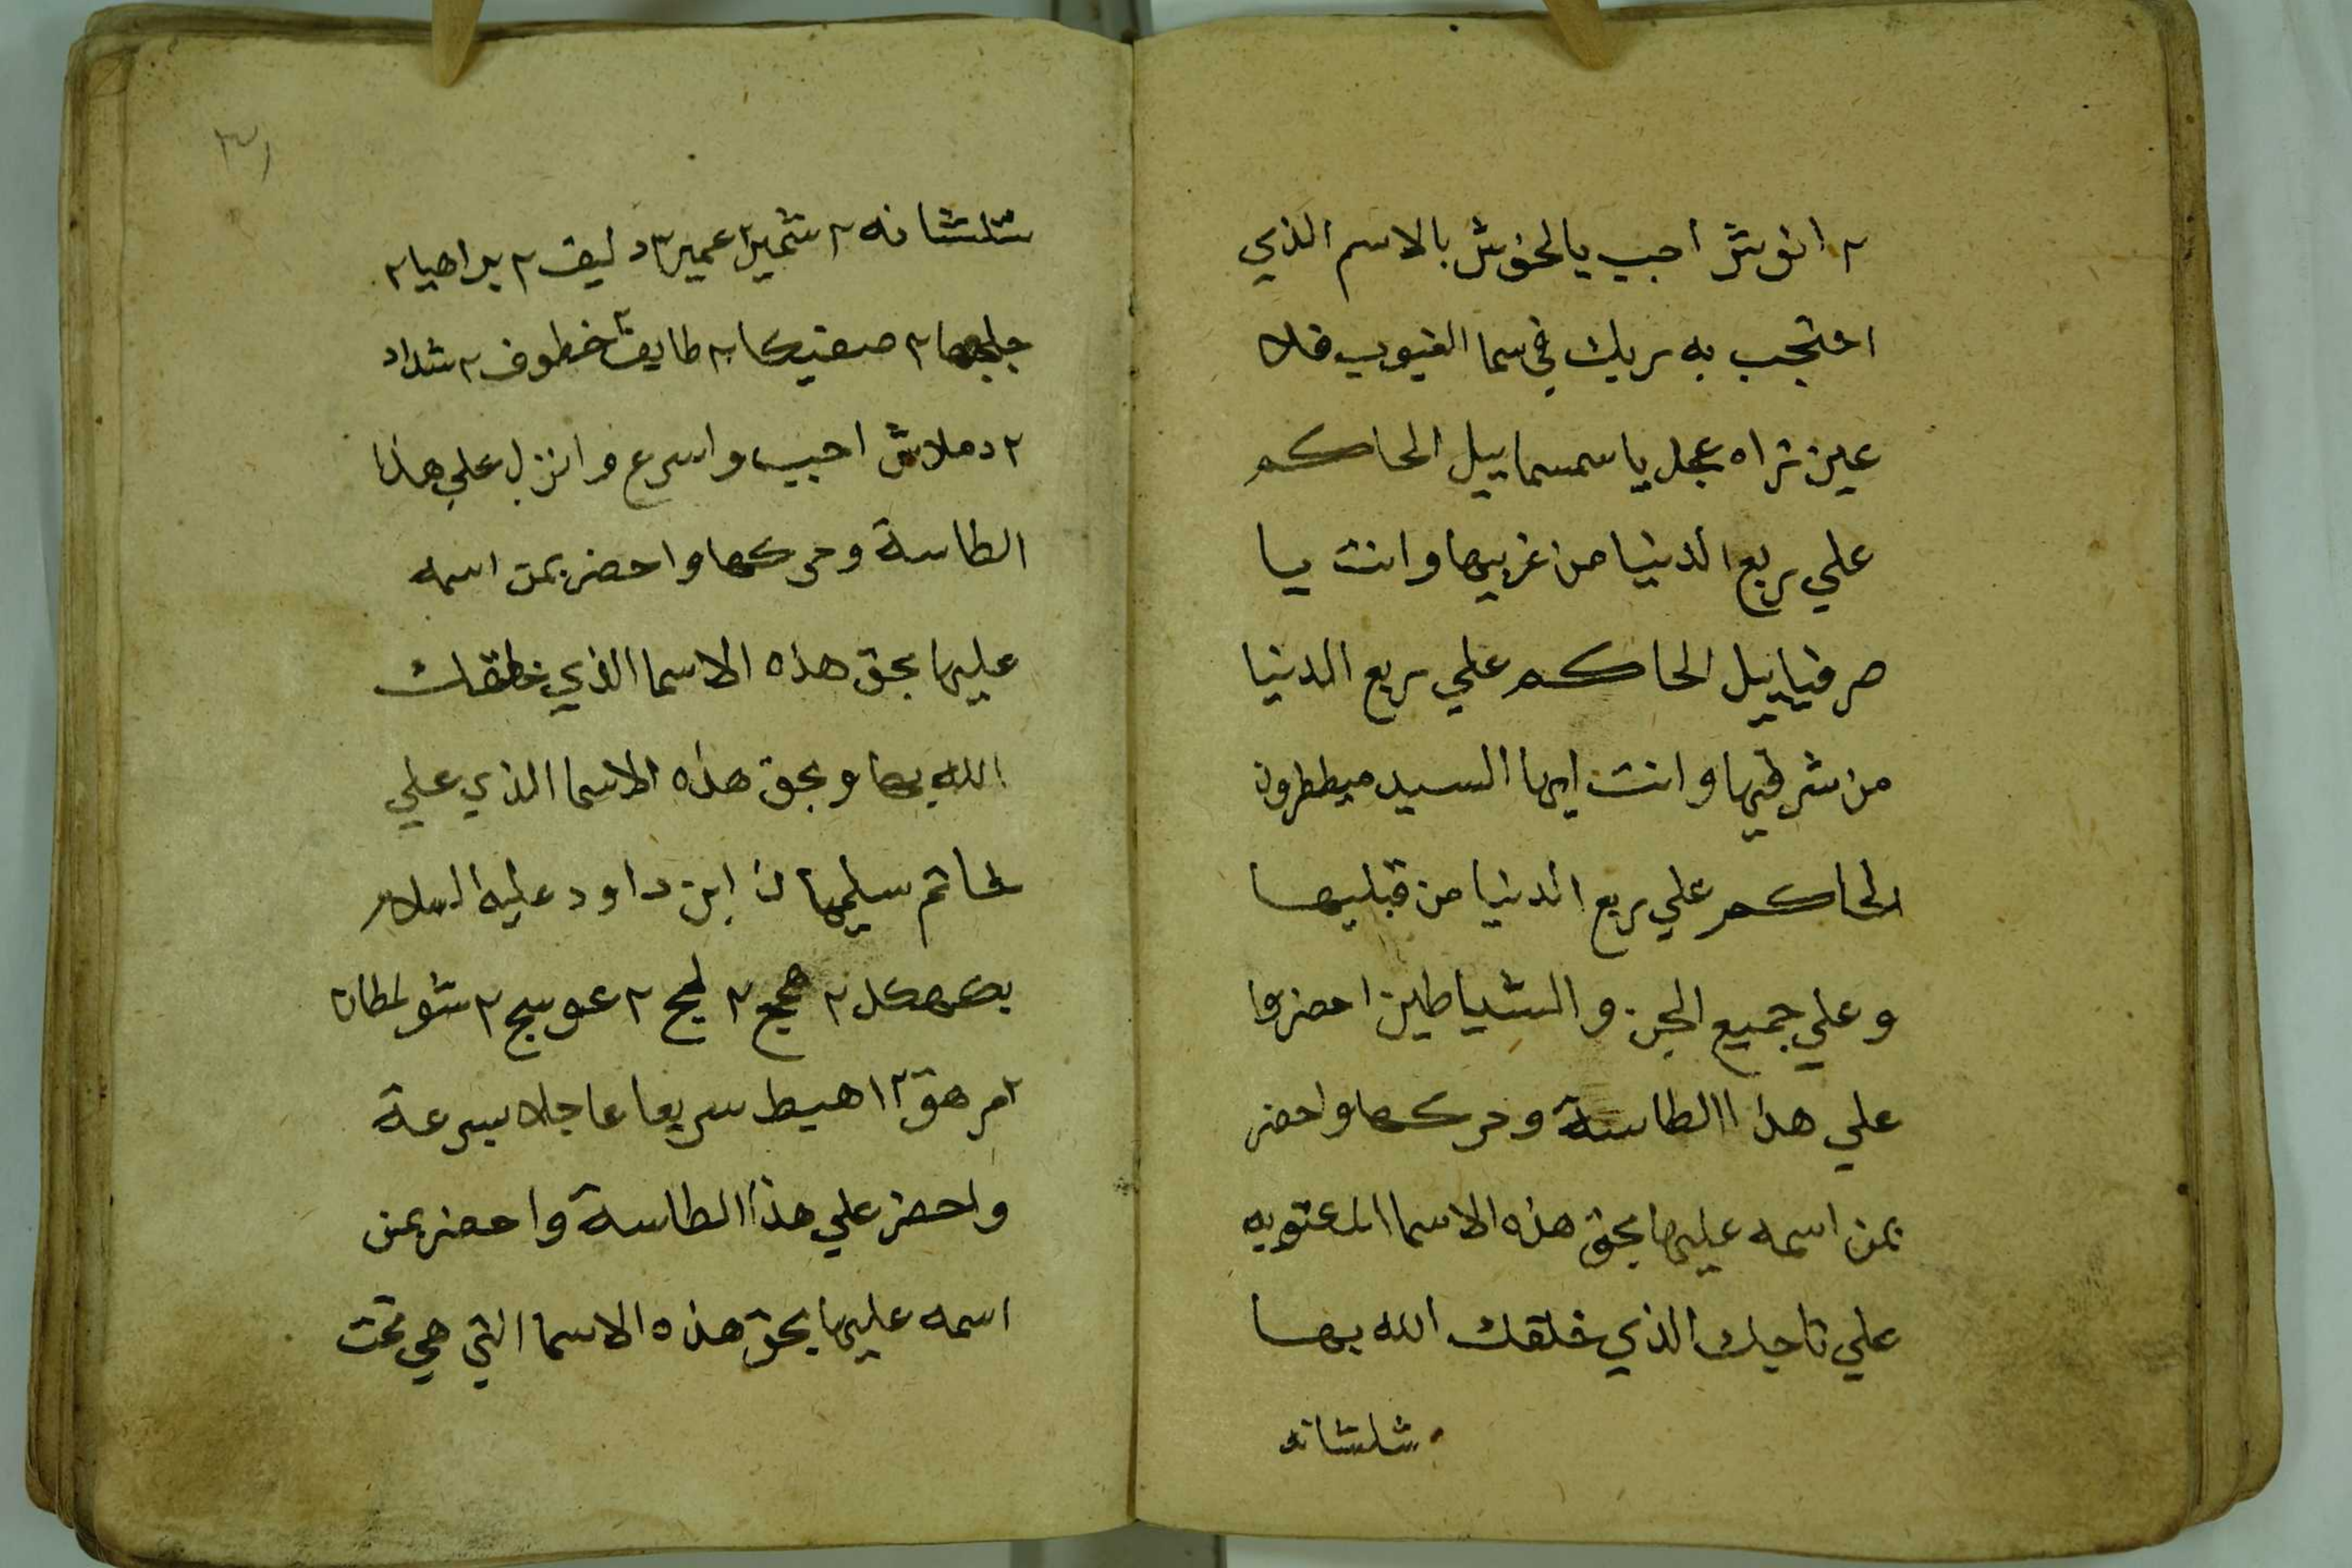 ٢ انوش اجب يالخوش بالاسم الذي
احتجب به ربك في سما الغيوب فلا
عين تراه عجل ياسمسماييل الحاكم
علي ربع الدنيا من غربيها وانت يا
صرفياييل الحاكم علي ربع الدنيا
من شرقيها وانت ايها السيد ميططرون
الحاكم علي ربع الدنيا من قبليها
وعلي جميع الجن والشياطين احضروا
علي هذا الطاسة وحركها واحضر
بمن اسمه عليها بحق هذه الاسما
علي تاجك الذي خلقك الله بها
شلشانه
٣١
شلشانه ٢ شمير ٢ عمير ٢ دليف ٢ براهيا ٢
٢ طايف ٢ خطوف ٢ شداد
٢ دملاش اجيب واسرع وانزل علي هذا
الطاسة وحركها واحضر بمن اسمه
عليها بحق هذه الاسما الذي خلقك
الله بها وبحق هذه الاسما الذي علي
خاتم سليمان ابن داود عليه السلام
بكهكل ٢ هجج ٢ لجج ٢ عوسج ٢ شولطان
٢ مرهق ٢ اهبط سريعا عاجلا بسرعة
واحضر علي هذا الطاسة واحضر بمن
اسمه عليها بحق هذه الاسما التي هي تحت